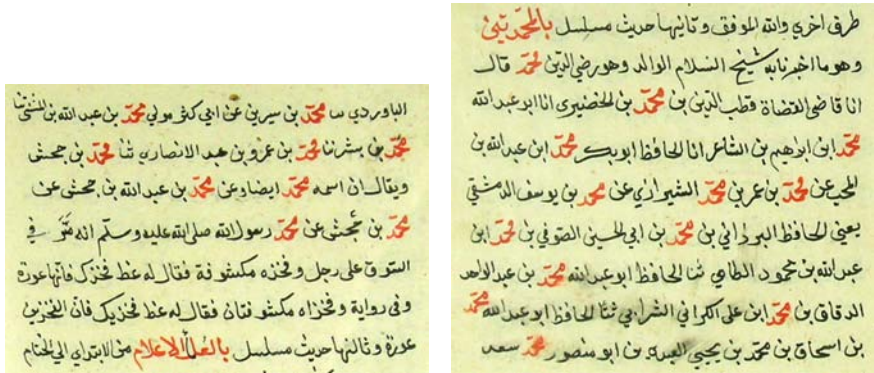 طرق اخري والله الموفق وثانيها حديث مسلسل بالمحمديين
وهو ما اخبرنا به شيخ السلام الوالد وهو رضي الدين محمد قال
انا قاضي القضاة قطب الدين بن محمد بن الخضيري انا ابو عبد الله
محمد ابن ابراهيم بن الشاعر انا الحافظ ابو بكر محمد ابن عبد الله بن
المحب عن محمد بن عمر بن محمد الشيرازي عن محمد بن يوسف الدمشقي
يعني الحافظ البرزالي بن محمد بن ابي الحسين الصوفي بن محمد ابن
عبد الله بن محمود الطاي ثنا الحافظ ابو عبد الله محمد بن عبد الواحد
الدقاق بن محمد ابن علي الكراني الشرابي ثنا الحافظ ابو عبد الله محمد
بن اسحاق بن محمد بن يحيي العبدي بن ابو منصور محمد سعد
الباوردي سا محمد بن سيرين عن ابي كثير مولي محمد بن عبد الله بن
محمد بن بشر ثنا محمد بن عمرو بن عبد الانصاري ثنا محمد بن جحش
ويقال ان اسمه محمد ايضا وعن محمد بن عبد الله بن جحش عن
محمد بن جحش عن محمد رسول الله صلى الله عليه وسلم انه مر في
السوق على رجل وفخذه مكشوفة فقال له غط فخذك فانها عورة
وفي رواية وفخذاه مكشوفتان فقال له غط فخذيك فان الفخذين
عورة وثالثها حديث مسلسل بالعلماء الاعلام من الابتداي الي الختام